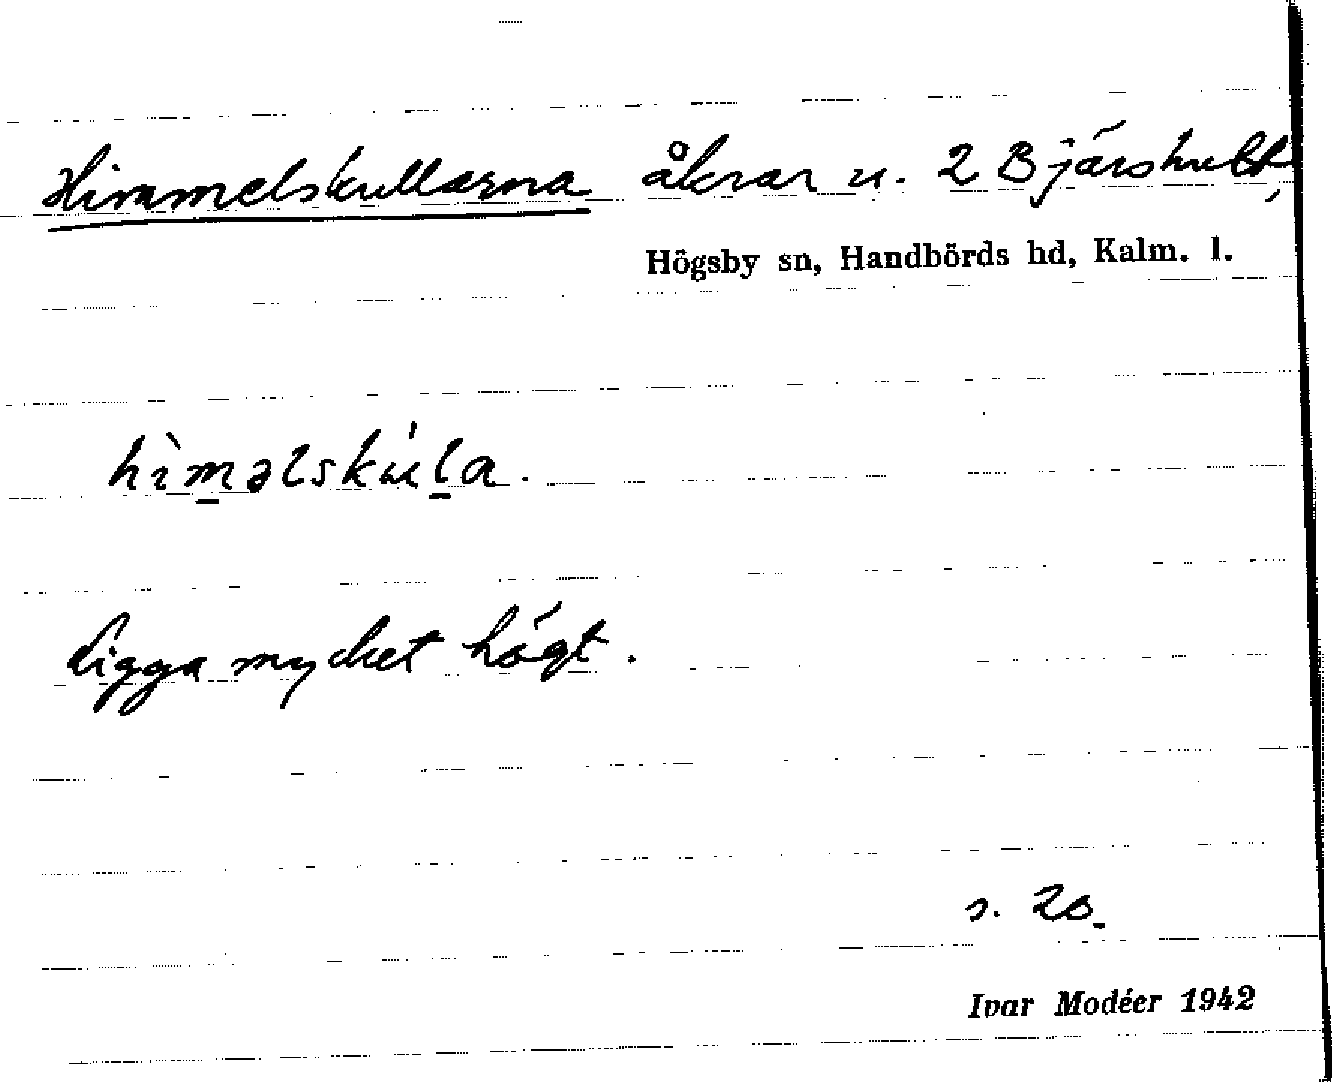 Himmelskullarna åkrar u. 2 Bjärshult,
Högsby sn, Handbörds hd, Kalm. l.
hìməlskúla.
Ligga mycket högt.
s. 20
Ivar Modéer 1942